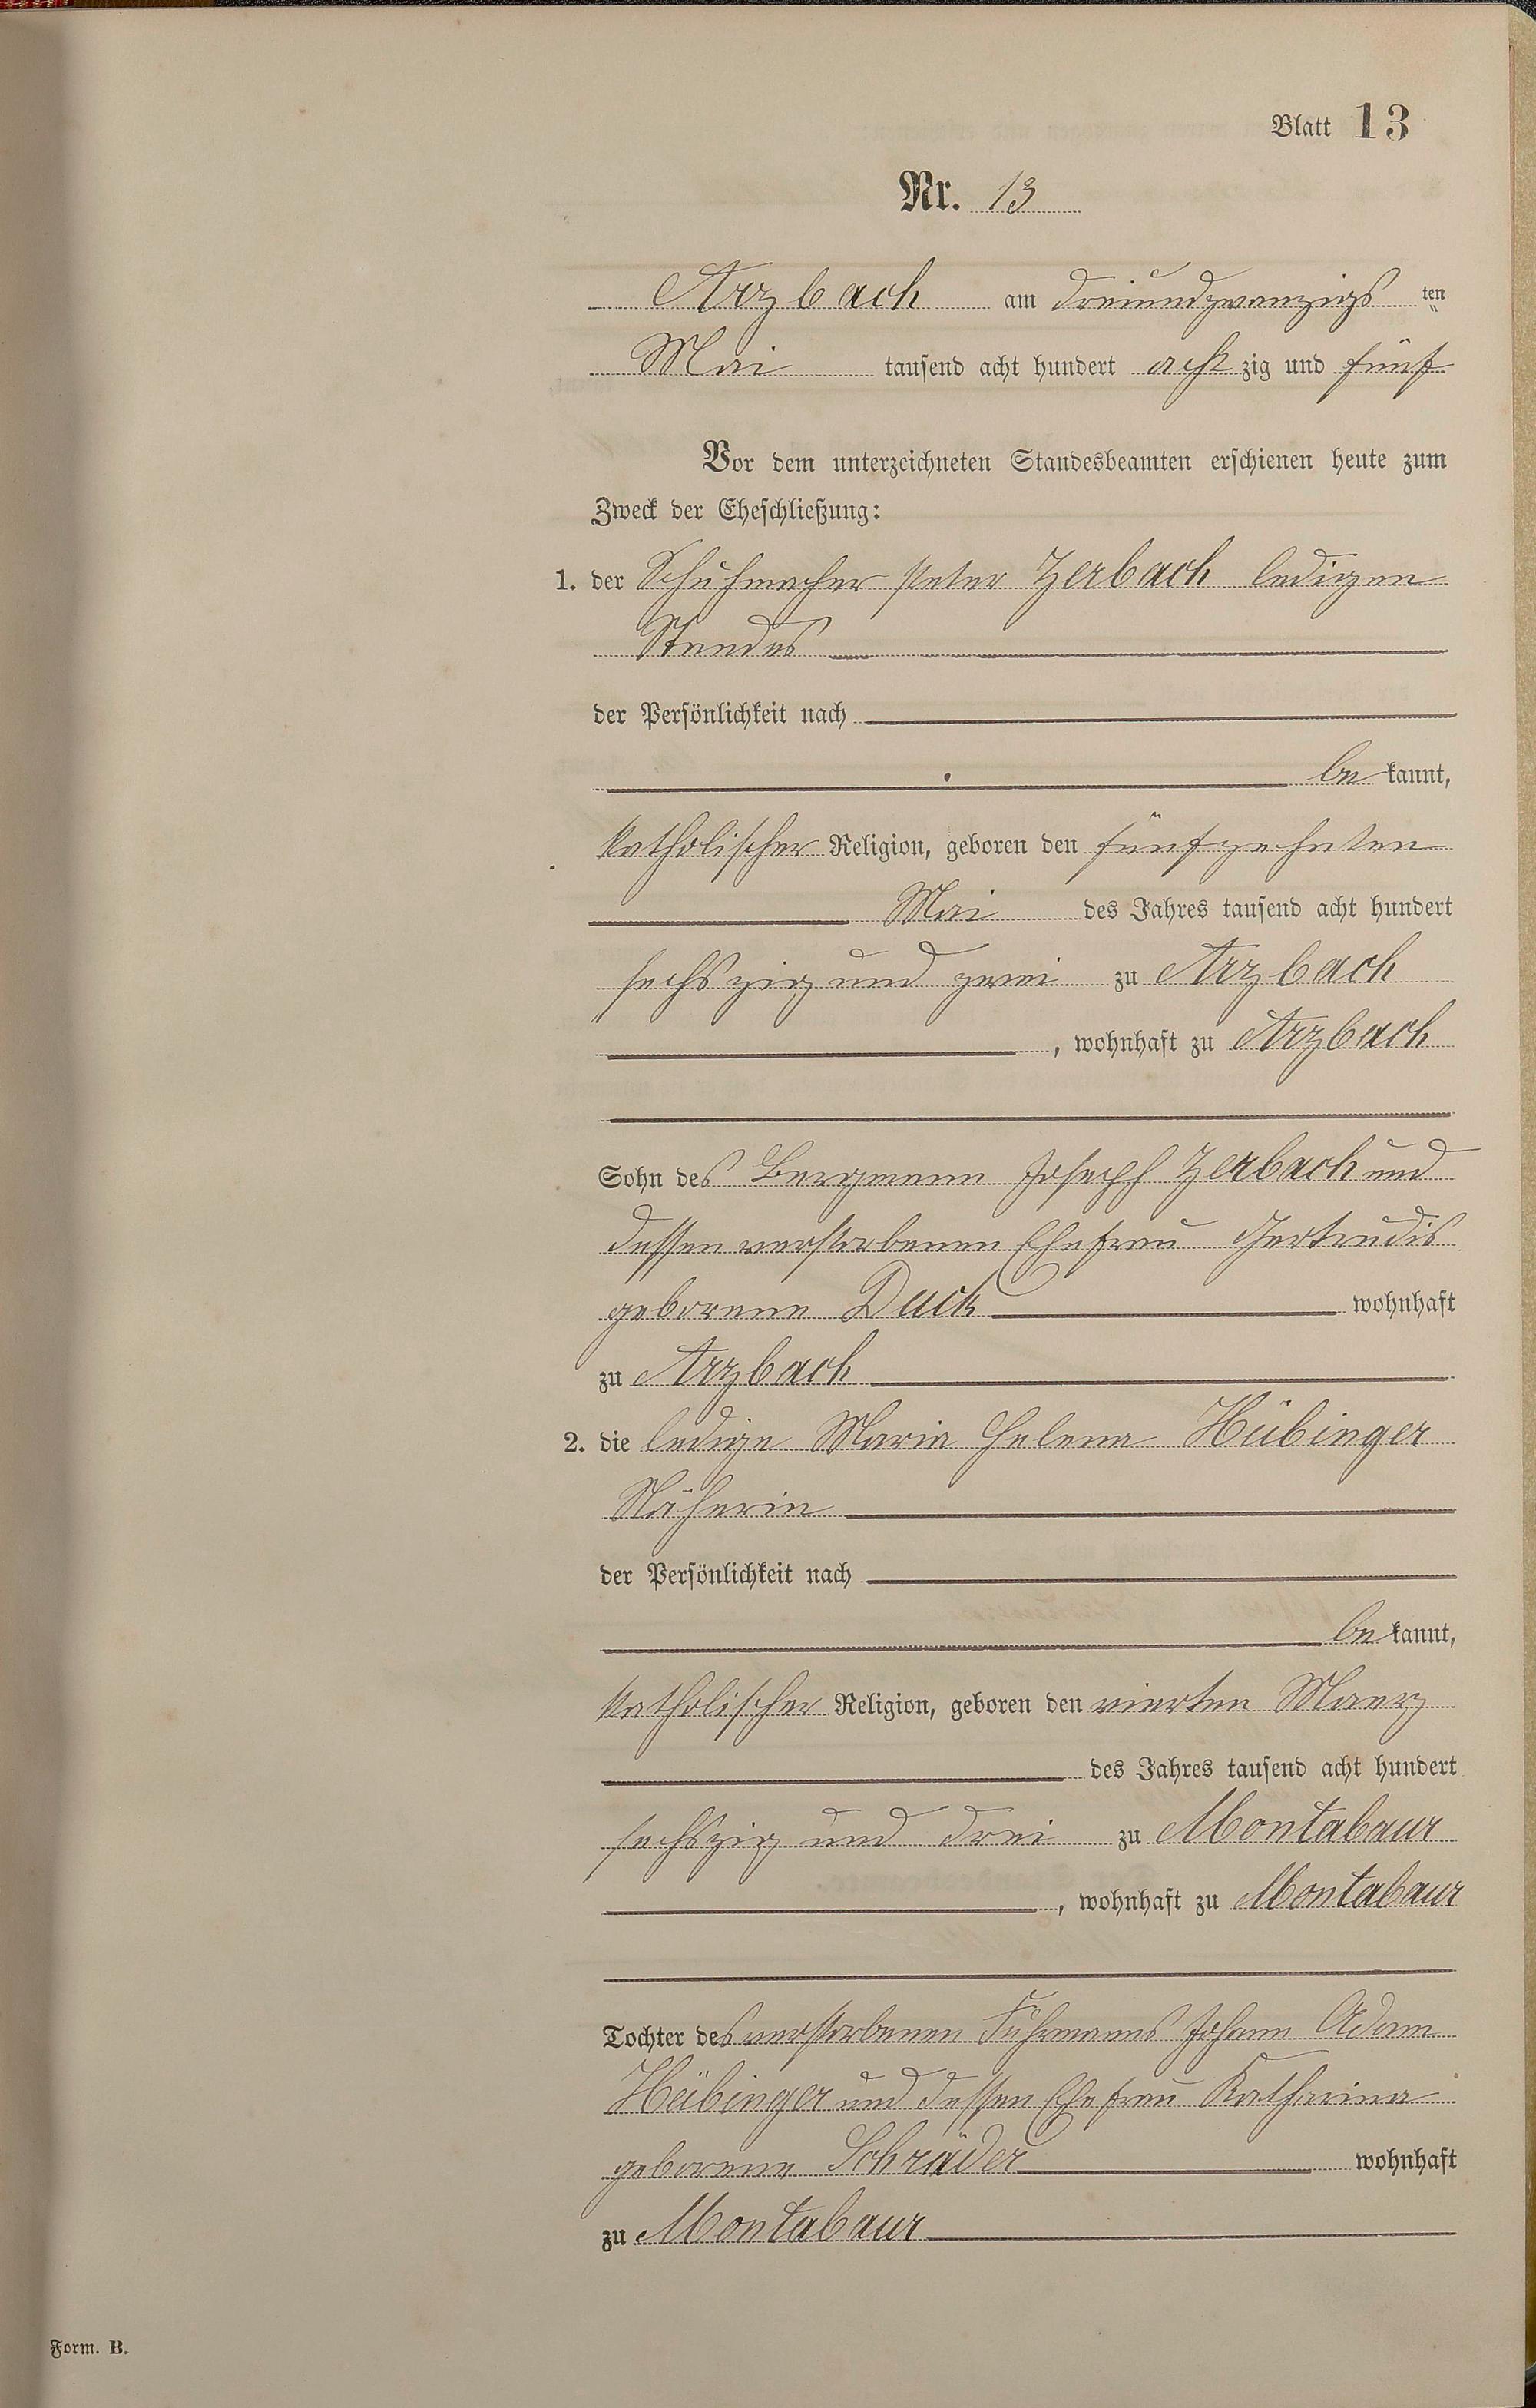 Blatt 13
Nr. 13
Arzbach am dreiundzwanzigs ten
Mai tausend acht hundert acht zig und fünf
Vor dem unterzeichneten Standesbeamten erschienen heute zum
Zweck der Eheschließung:
1. der Schuhmacher Peter Zerbach ledigen
Standes
der Persönlichkeit nach
be kannt,
katholischer Religion, geboren den fünfzehnten
Mai des Jahres tausend acht hundert
sechszig und zwei zu Arzbach
, wohnhaft zu Arzbach
Sohn des Bergmann Joseph Zerbach und
dessen verstorbenen Ehefrau Gertrudis
geborene Duck wohnhaft
zu Arzbach
2. die ledige Maria Helena Hübinger
Näherin
der Persönlichkeit nach
be kannt,
katholischer Religion, geboren den vierten Maerz
des Jahres tausend acht hundert
sechszig und drei zu Montabaur
, wohnhaft zu Montabaur
Tochter des verstorbenen Fuhrmanns Johann Adam
Hübinger und dessen Ehefrau Katharina
geborene Schräder wohnhaft
zu Montabaur
Form. B.